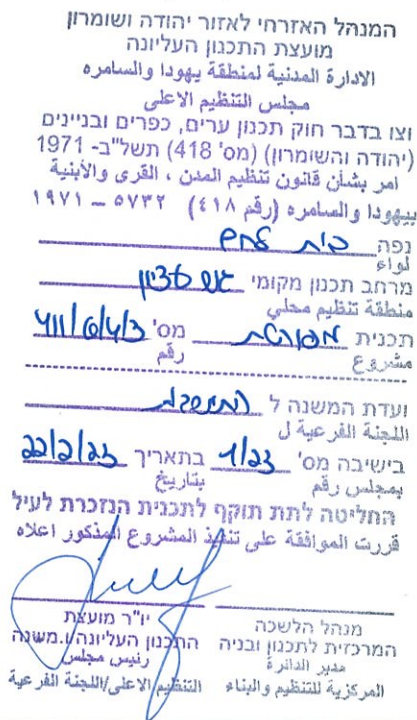 המנהל האזרחי לאזור יהודה ושומרון
מועצת התכנון העליונה
الادارة المدنية لمنطقة يهودا والسامره
مجلس التنظيم الاعلى
וצו בדבר חוק תכנון ערים, כפרים ובניינים
(יהודה והשומרון) (מס' 418) תשל"ב- 1971
امر بشأن قانون تنظيم المدن ، القرى والأبنية
بيهودا والسامره (رقم ٤١٨) ٥٧٣٢ – ١٩٧١
נפה בית לחם
لواء
מרחב תכנון מקומי גוש עציון
منطقة تنظيم محلي
תכנית מפורטת מס' 411/6/4/3
مشروع رقم
ועדת המשנה ל התישבות
اللجنة الفرعية ل
בישיבה מס' 1/23 בתאריך 22/2/23
بمجلس رقم بتاريخ
החליטה לתת תוקף לתכנית הנזכרת לעיל
قررت الموافقة على تنفيذ المشروع المذكور اعلاه
מנהל הלשכה יו"ר מועצת
המרכזית לתכנון ובניה התכנון העליונה/ו.משנה
مدير الدائرة رئيس مجلس
المركزية للتنظيم والبناء التنظيم الاعلى/اللجنة الفرعية